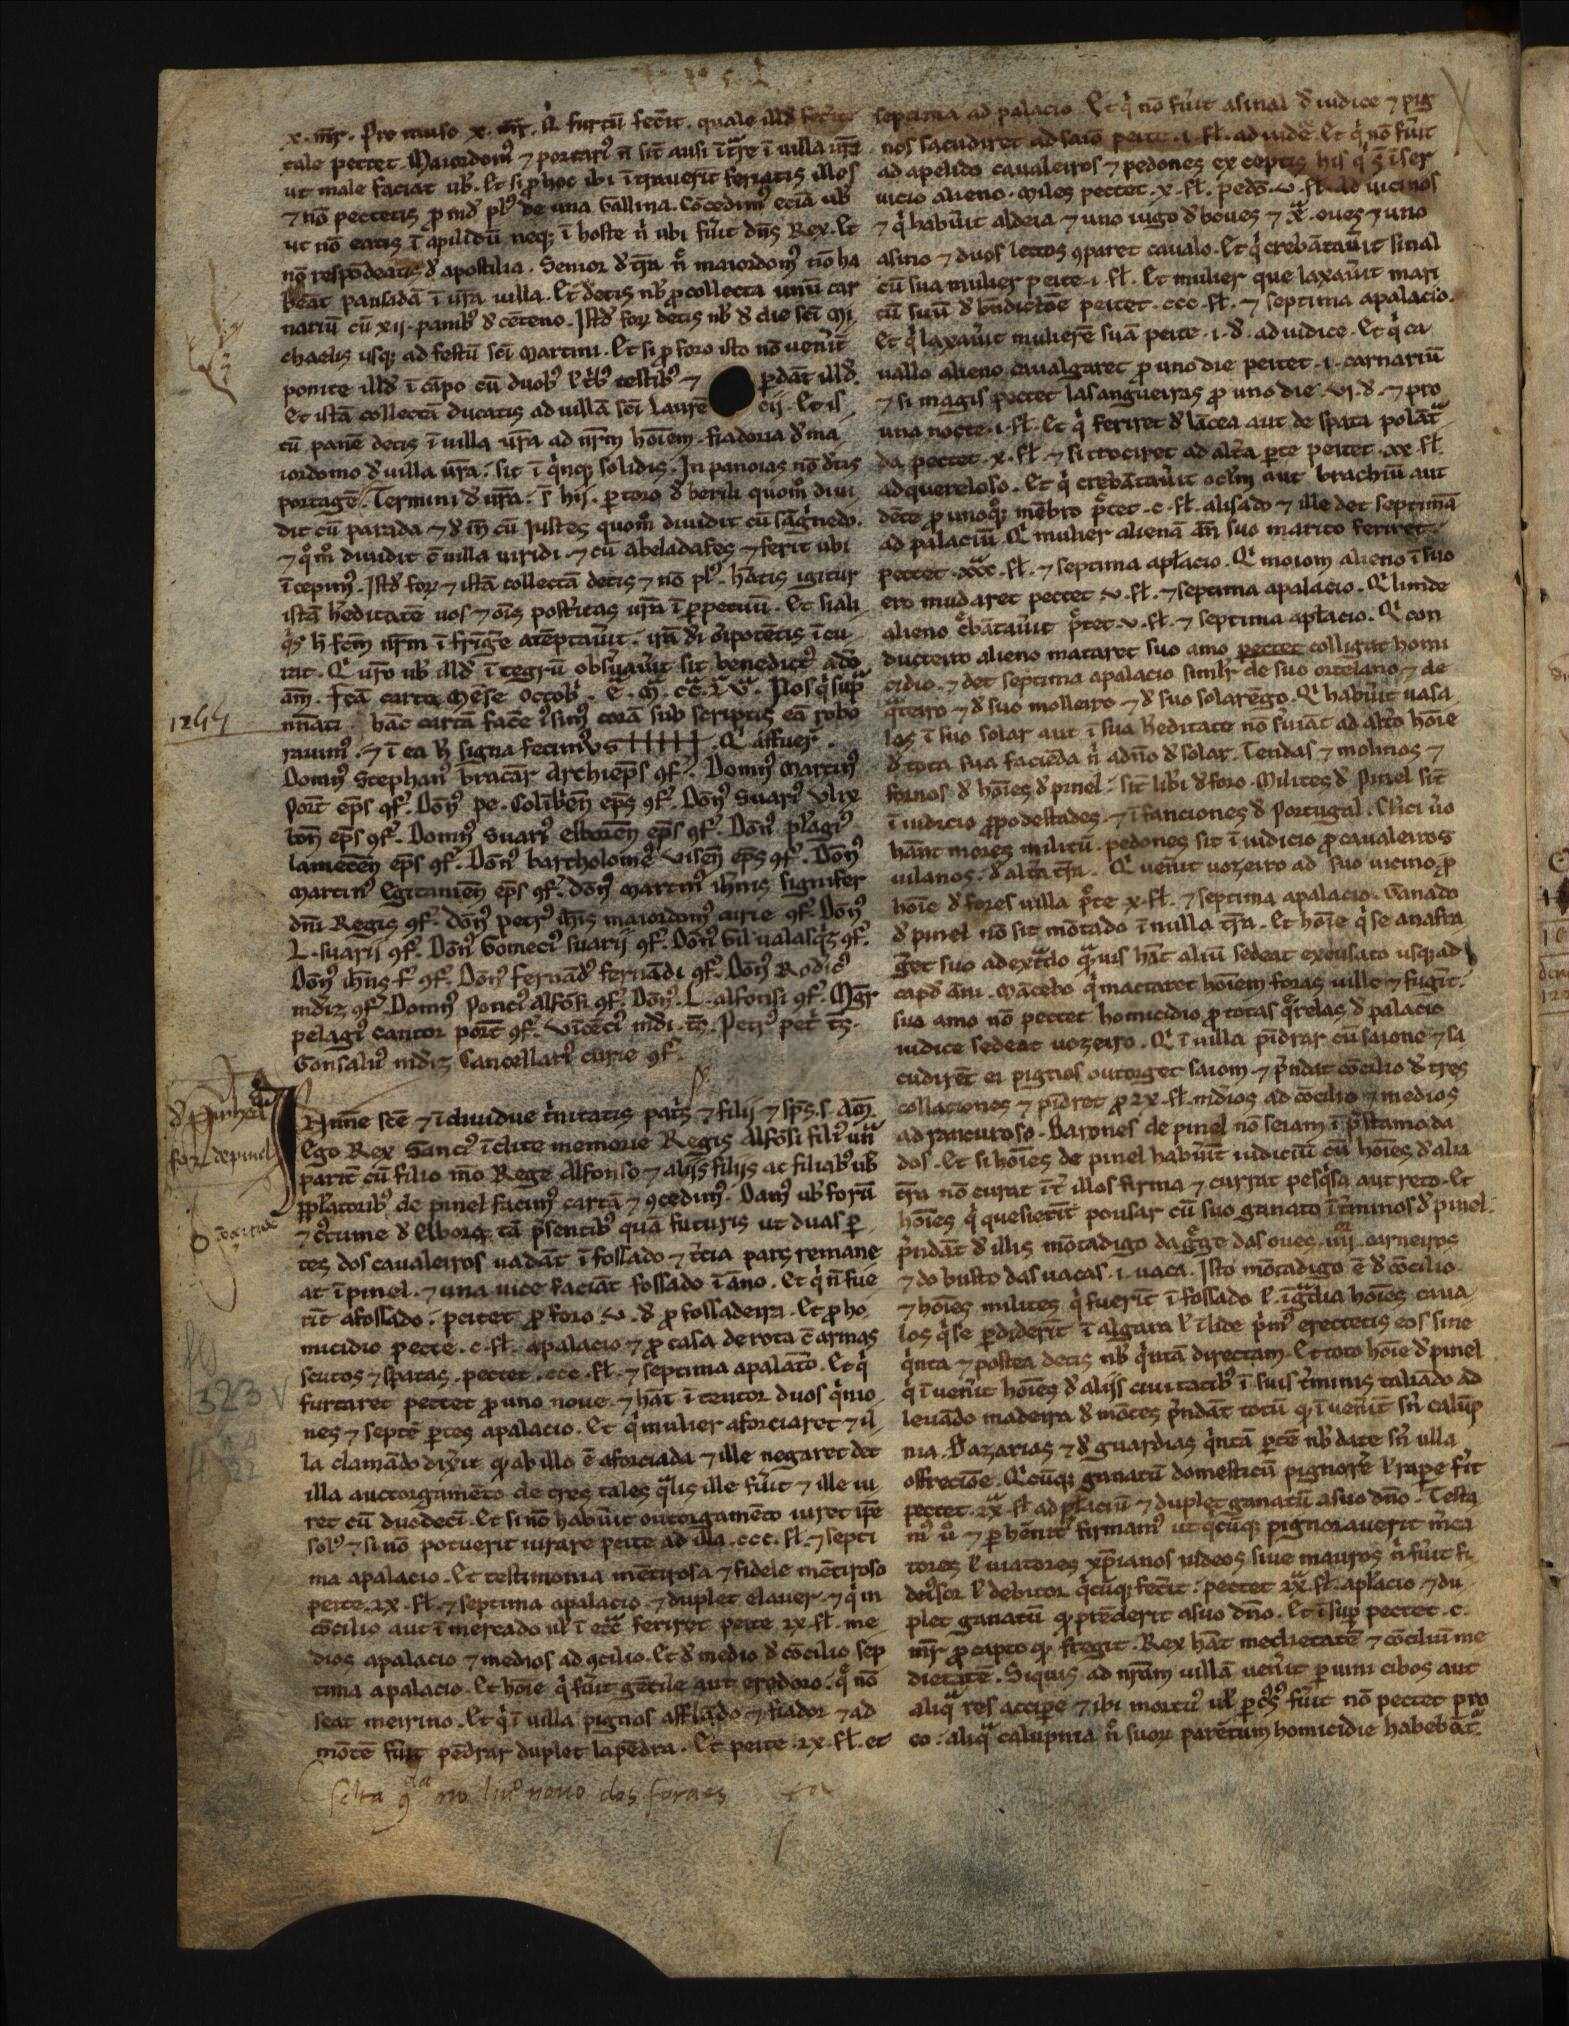 x. mr̄. Pro rauso x. mr̄. Q̇ furtū fec̄it. quale illđ fec̄it
tale pectet. Maiordom᷒ ⁊ portari᷒ n̄ sīt ausi ītᵃre ī uilla ur̄a
ut male faciat uƀ. Et si p̱ hoc ibi ītrauerīt feriatis illos
⁊ nō pectetis p̱ inđ pl᷒ de una Gallina. Cōcedim᷒ eciā uƀ
ut nō eatis ī apillidū neq; ī hoste n̓ ubi fu̓it dn̄s Rex. Et
nō respōdeatis đ apostilia. Senior đ tr̄a n̓ maiordom᷒ nō ha
beat pausadā ī ur̄a uilla. Et detis nƀ p̱ collecta unū car
nariū cū xij. paniƀ᷒ đ cēteno. Istđ foꝝ detis nƀ đ die sc̄i Mi
chaelis usq; ad festū sc̄i Martini. Et si p̱ foro isto nō uen̓it
ponite illđ ī cāpo cū duoƀ᷒ ł t̓ƀ᷒ testiƀ᷒ ⁊ p̱dāt illđ.
Et istā collectā ducatis ad uillā sc̄i Laurē cij. Et is
tū panē detis ī uilla ur̄a ad nr̄m hoīem. fiadoria đ ma
iordomo đ uilla ur̄a. sit ī q̓nq; solidis. In panoias nō đtis
portagē. Termini đ ur̄a. s̄ hij. p̱ toro đ berili quom̊ diui
dit cū parada ⁊ đ ī cū Justes quom̊ diuidit cū sāg̓nedo.
⁊ q̊m̊ diuidit ē uilla uiridi ⁊ cū Abeladafes ⁊ ferit ubi
īcepim᷒. Istđ foꝝ ⁊ istā collectā detis ⁊ nō pl᷒. h̄atis igitur
istā h̓editatē uos ⁊ oīs post̓itas ur̄a ī p̱petuū. Et si ali
q̓s h̄ fc̄m nr̄m īfrīg̓e atēptau̓it. irā đi oīpotētis īcu
rat. Q ur̄o uƀ illđ ītegrū obs̓uau̓it sit benedict᷒ a đo
am̄. Fc̄a carta Mēse Octoƀ. E. M̊. cc̊. L̊ V̊. Nos q̓ supᵃ
nīnati hāc cartā facē ᷒ sim᷒ corā sub scriptis eā robo
rauim᷒. ⁊ ī ea ħ signa fecim᷒ VS ┼┼┼┼┼. Q affuer̄.
Domn᷒ Stephan᷒ bracar̄ Archiep̄s ꝯf̓. Domn᷒ Martin᷒
Port̄ ep̄s ꝯf̓. Dōn᷒ pe. Coliƀēn ep̄s ꝯf̓. Dōn᷒ Suari᷒ Vlix
bon̄ ep̄s ꝯf̓. Domn᷒ Suari᷒ elborēn ep̄s ꝯf̓. Dōn᷒ plagi᷒
lamecen̄ ep̄s ꝯf̓. Dōn᷒ bartholome᷒ Visen̄ ep̄s ꝯf̓. Dōn᷒
Martin᷒ Egitanien̄ ep̄s ꝯf̓. dōn᷒ Martin᷒ ih̄nis signifer
dn̄i Regis ꝯf̓. Dōn᷒ petr᷒ ih̄nis maiordom᷒ curie ꝯf̓. Dōn᷒
L. suarij ꝯf̓. Dōn᷒ Gomeci᷒ suarij ꝯf̓. Dōn᷒ Gil ualasq̓z ꝯf̓.
Dōn᷒ ih̄nis f̓ ꝯf̓. Dōn᷒ Fernād᷒ fernādi ꝯf̓. Dōn᷒ Rodic᷒
mđiz ꝯf̓. Domn᷒ Ponci᷒ Alfōsi ꝯf̓. Dōn᷒ L. alfonsi ꝯf̓. Mg̓r
pelagi᷒ cantor port̄ ꝯf̓. Vīcēci᷒ mđi. t̄s. Petr᷒ petri t̄s.
Gonsalu᷒ mđiz Cancellari᷒ curie ꝯf̓.
1255
đ Pinhel
for̄ de pinel
323
In nn̄e sc̄e ⁊ īdiuidue t̓nitatis pat̓s ⁊ filij ⁊ sp̄s. s. Am̄.
Ego Rex Sanci᷒ īclite memorie Regis Alfōsi fili᷒ un̄a
paritē cū filio m̄o Rege Alfonso ⁊ alijs filijs ac filiaƀ᷒ uƀ
pp̱latoriƀ᷒ de pinel facim᷒ cartā ⁊ ꝯcedim᷒. Dam᷒ uƀ forū
⁊ c̓tume đ Elboꝝ tā p̄sentiƀ᷒ quā futuris ut duas p̱
tes dos caualeiros uadāt ī fossado ⁊ t̓cia pars remane
at ī pinel. ⁊ una uice faciāt fossado ī āno. Et q̓ n̄ fue
rīt a fossado. peitet p̱ foro .v. đ p̱ fossadeira. Et p̱ ho
micidio pecte. c. sł. apalacio ⁊ p̱ casa derota c̄ armas
scutos ⁊ spatas. pectet. ccc. sł. ⁊ septima apalatō. Et q̓
furtaret pectet p̱ uno noue. ⁊ hāt ī tentor duos q̓nio
nes ⁊ septē p̱tes apalacio. Et q̓ mulier aforciaret ⁊ il
la clamādo dix̓it q̱ ab illo ē aforciada ⁊ ille negaret det
illa auctorgamēto de tres tales q̓lis ille fu̓it ⁊ ille iu
ret cū duodecī. Et si nō habu̓it outorgamēto iuret ip̄e
sol᷒ ⁊ si nō potuerit iurare peite ad illa. ccc. sł. ⁊ septi
ma apalacio. Et testimonia mētirosa ⁊ fidele mētiroso
peite. lx. sł. ⁊ septima apalacio ⁊ duplet elauer. ⁊ q̓ in
cōcilio aut ī mercado uł ī ecc̄a feriret peite lx. sł. me
dios apalacio ⁊ medios ad ꝯcilio. Et đ medio đ cōcilio sep
tima apalacio. Et hoīe q̓ fu̓it gētile aut eredoro. q̊ nō
seat meirino. Et q̓ ī uilla pignos afflādo ⁊ fiador ⁊ ad
mōtē fu̓it pēdrar duplet lapēdra. Et peite. lx. sł. et
septima ad palacio Et q̓ nō fu̓it asinal đ iudice ⁊ pig
nos sacudiret ad saiō peite. i. sł. ad iudē. Et q̓ nō fu̓it
ad apelido caualeiros ⁊ pedones exceptis his q̓ s̄ īser
uicio alieno. Miles pectet. x. sł. pedō. v. sł. ad uicinos
⁊ q̓ habu̓it aldeia ⁊ uno iugo đ boues ⁊ xᵃ. oues ⁊ uno
asino ⁊ duos lectos ꝯparet caualo. Et q̓ crebātau̓it sinal
cū sua mulier peite. i. sł. Et mulier que laxau̓it mari
tū suū đ bn̄dictōe peitet. ccc. sł. ⁊ septima apalacio.
Et q̓ laxau̓it mulierē suā peite. i. đ. ad iudice. Et q̓ ca
uallo alieno caualgaret p̱ uno die peitet. i. carnariū
⁊ si magis pectet las angueiras p̱ uno die. vi. đ. ⁊ pro
una nocte. i. sł. Et q̓ feriret đ lācea aut de spata p̱ lātᵃ
da pectet. x. sł. ⁊ si trociret ad alt̓a p̱te peitet. xx. sł.
ad quereloso. Et q̓ crebātau̓it oc̄lm aut brachiū aut
dēte p̱ unoq; mēbro p̓ctet. c. sł. alisado ⁊ ille det septimā
ad palaciū. Q mulier alienā añ suo marito feriret.
pectet. xxxᵃ. sł. ⁊ septima apłacio. Q moiom alieno ī suo
ero mudaret pectet v. sł. ⁊ septima apalacio. Q linde
alieno c̓bātau̓it p̓tet. v. sł. ⁊ septima apłacio. Q con
ducteiro alieno mataret suo amo pectet colligat homi
cidio. ⁊ det septima apalacio similr̄ de suo ortelano ⁊ de
q̓rteiro ⁊ đ suo molleiro ⁊ đ suo solarēgo. Q habu̓it uasa
los ī suo solar aut ī sua h̓editate nō s̓uiāt ad alt̓o hoīe
đ tota sua faciēda n̓ adn̄o đ solar. Tendas ⁊ molinos ⁊
fornos đ hoīes đ pinel. sīt lib̓i đ foro. Milites đ Pinel sīt
ī iudicio p̱ podestades. ⁊ īfanciones đ Portugal. Cl̓ici u̓o
hānt mores militū. pedones sīt ī iudicio p̱ caualeiros
uilanos. đ alt̓a tr̄a. Q uen̓it uozeiro ad suo uicino p̱
hoīe đ fores uilla p̓te x. sł. ⁊ septima apalacio. Ganado
đ pinel nō sit mōtado ī nulla tr̄a. Et hoīe q̓ se anafra
g̓et suo adextᵃdo qᵃuis hāt aliū sedeat exousato usq; ad
capđ āni. Mācebo q̓ mactaret hoīem foras uille ⁊ fug̓it.
suo amo nō pectet homicidio p̱ totas q̊relas đ palacio
iudice sedeat uozeiro. Q ī uilla pīdrar cū saione ⁊ sa
cudirēt ei pignos outorget saiom ⁊ p̓ndat cōcilio đ tres
collaciones ⁊ pīdret p̱ lx. sł. mđios ad cōcilio ⁊ medios
ad rancuroso. Barones de pinel nō seiam ī p̄stamo da
dos. Et si hoīes de pinel habu̓it iudiciū cū hoīes đ alia
tr̄a nō currat īt̓ illos firma ⁊ currat pesq̓sa aut reto. Et
hoīes q̓ quesierīt pousar cū suo ganato ī t̓minos đ pinel.
p̓ndāt đ illis mōtadigo dag̓ge das oues. iiijor. carneiros
⁊ do busto das uacas. i. uaca. Isto mōtadigo ē đ cōcilio
⁊ hoīes milites q̓ fuerīt ī fossado ł īgᵃdia hoīes caua
los q̓ se p̱diderīt ī algara ł ī lide p̓m᷒ erectetis eos sine
q̓nta ⁊ postea detis nƀ q̓ntā directam. Et toto hoīe đ pinel
q̓ īuen̓it hoīes đ alijs ciuitatiƀ᷒ ī suis t̓minis taliādo aut
leuādo madeira đ mōtes p̓ndāt totū q̱ īuen̓it sn̄ calūp
nia. Dazarias ⁊ đ guardias q̓ntā p̱tē nƀ date sn̄ ulla
offrecōe. Q̓cūq; ganatū domesticū pignore ł rap̱e f̓it
pectet. lxᵃ. sł. ad płaciū ⁊ duplet ganatū a suo dn̄o. Testa
m᷒ u̓o ⁊ p̱hēnit̓ firmam᷒ ut q̓cūq; pignorauerit m̓ca
tores ł uiatores xp̄ianos iudeos siue mauros n̓ fu̓it fi
deiussor ł debitor q̓cūq; fec̓it. pectet lxᵃ. sł. apłacio ⁊ du
plet ganatū q̱ p̱rēderit a suo dn̄o. Et īsup̱ pectet. c.
mr̄ p̱ capto q̱ fregit. Rex hāt medietatē ⁊ cōciliū me
dietatē. Siquis ad nr̄am uillā uen̓it p̱ uim cibos aut
aliqᵃ res accip̱e ⁊ ibi mortu᷒ uł p̱cuss᷒ fu̓it nō pectet pro
eo. aliqᵃ calupnia n̓ suoꝝ parētum homicidie habebāt᷒.
falta no liur̊ nouo dos foraes